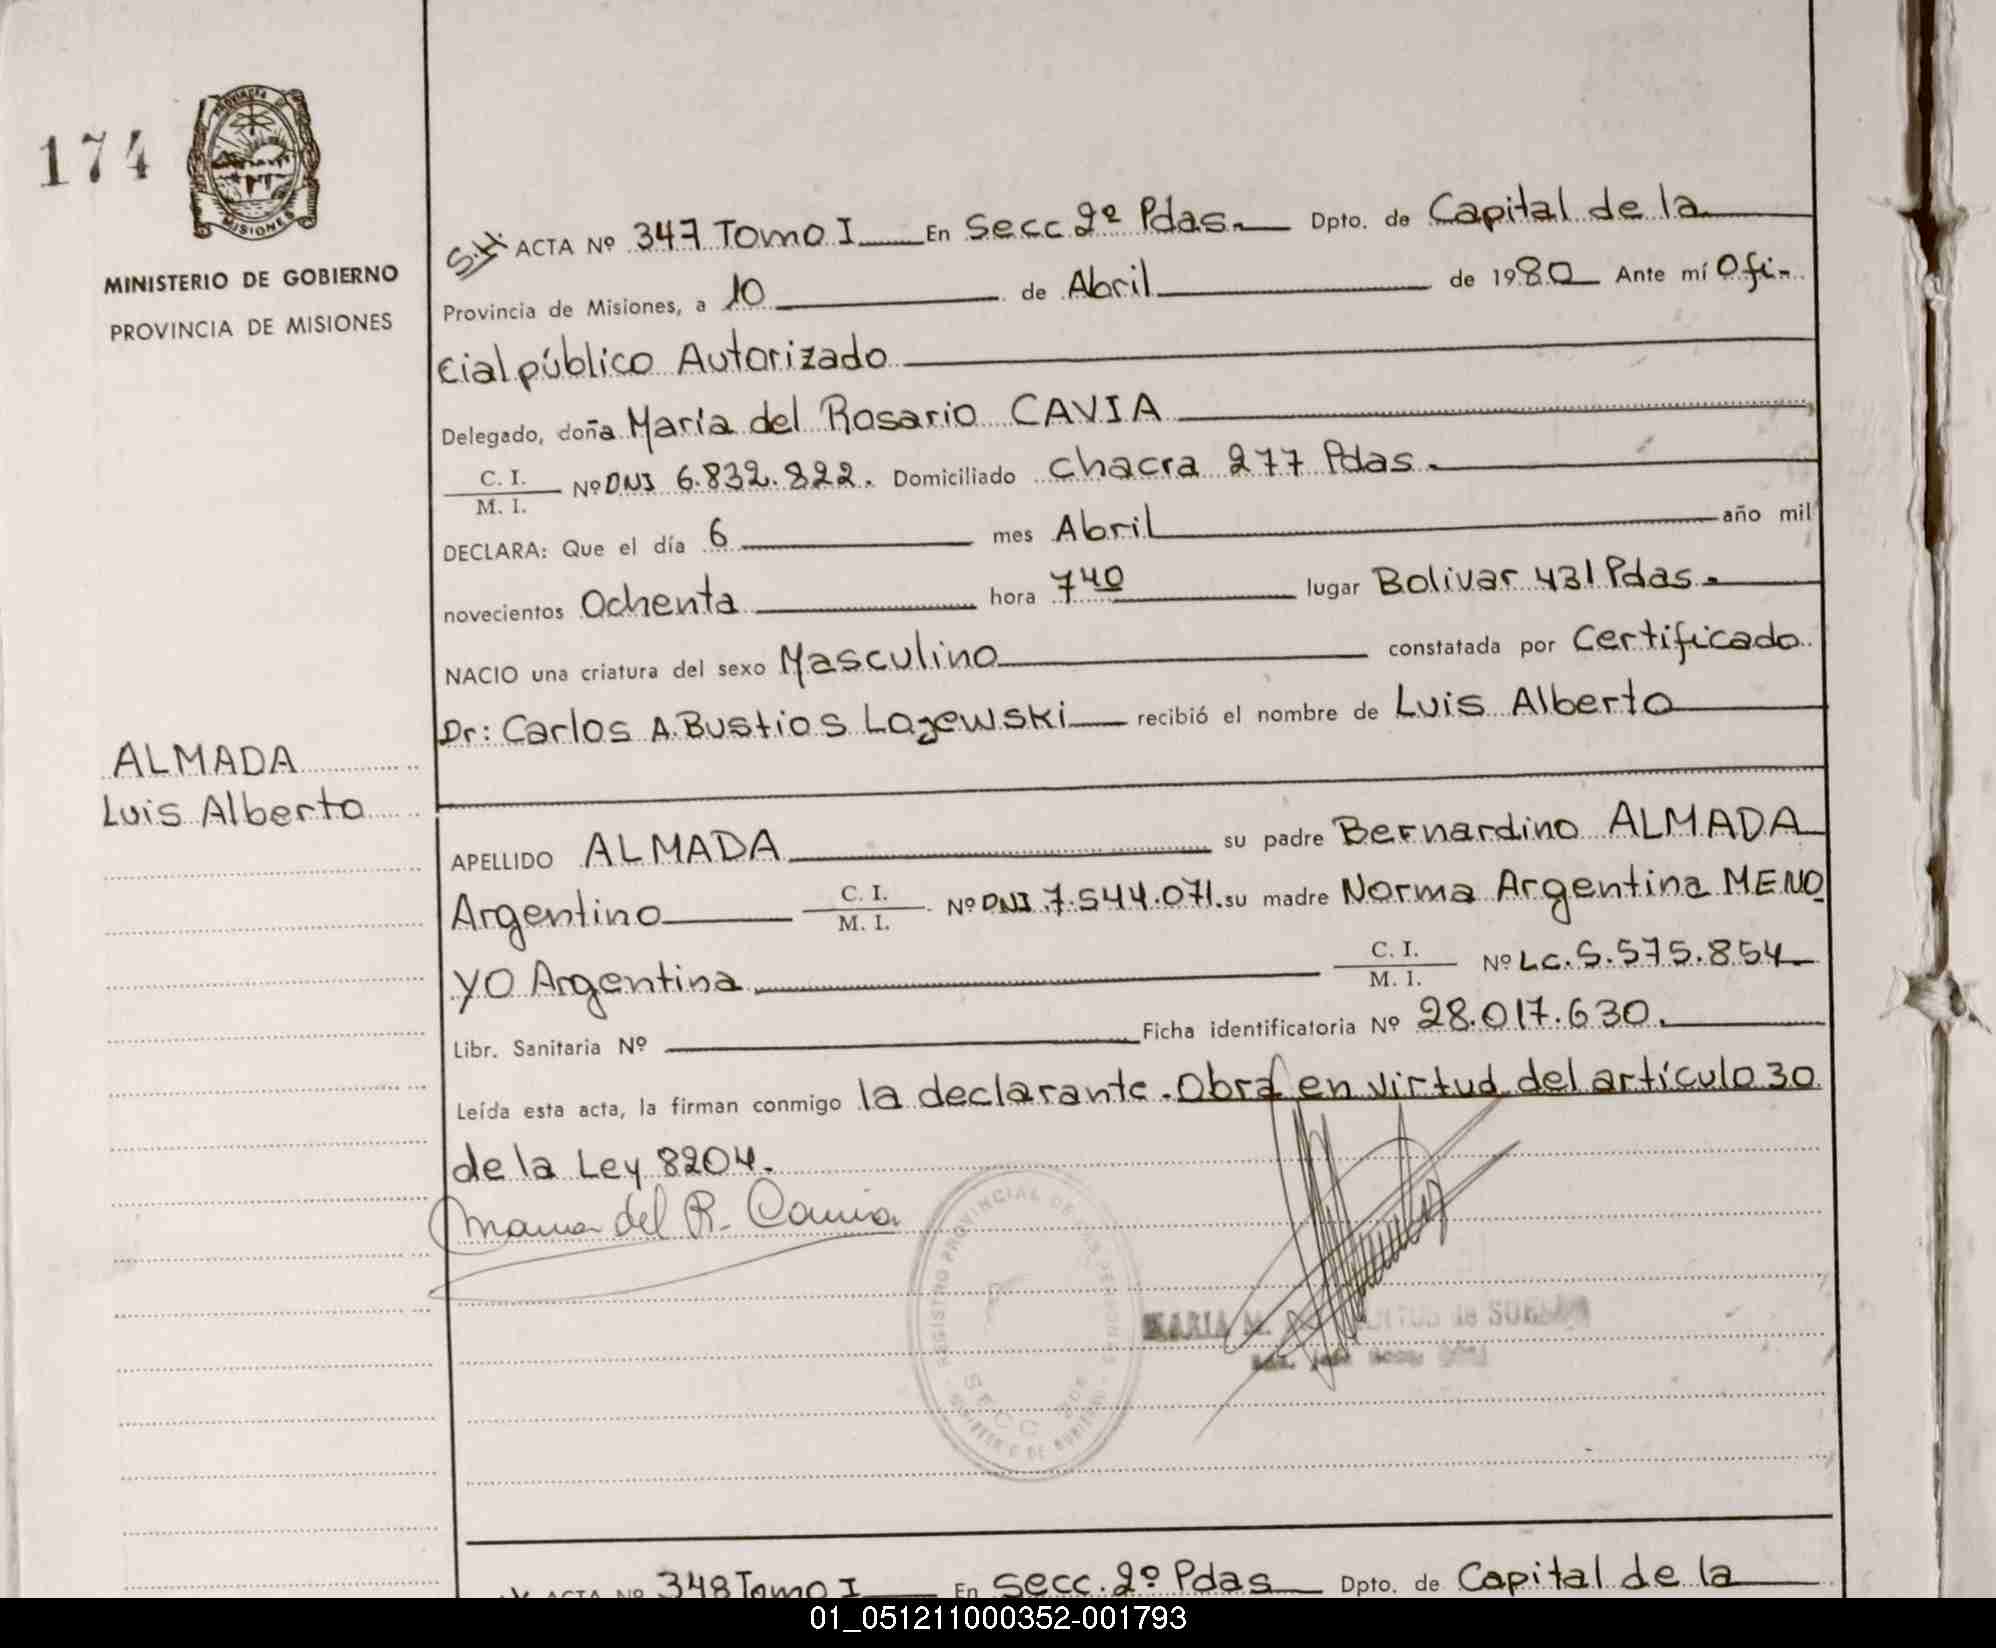 174
PROVINCIA DE
MISIONES
MINISTERIO DE GOBIERNO
PROVINCIA DE MISIONES
ACTA Nº 347 Tomo I En Secc 2º Pdas. Dpto. de Capital de la
Provincia de Misiones, a 10 de Abril de 1980 Ante mí Ofi-
cial público Autorizado
Delegado, doña María del Rosario CAVIA
C. I.
M. I. Nº DNI 6.832.822. Domiciliado chacra 277 Pdas.
DECLARA: Que el día 6 mes Abril año mil
novecientos Ochenta hora 7 40 lugar Bolivar 431 Pdas.
NACIO una criatura del sexo Masculino constatada por Certificado
Dr: Carlos A. Bustios Lajewski recibió el nombre de Luis Alberto
ALMADA
Luis Alberto
APELLIDO ALMADA su padre Bernardino ALMADA
Argentino C. I. M. I. Nº DNI 7.544.071. su madre Norma Argentina MENO
YO Argentina C. I. M. I. Nº LC. 5.575.854
Libr. Sanitaria Nº Ficha identificatoria Nº 28.017.630.
Leída esta acta, la firman conmigo la declarante. Obra en virtud del artículo 30
de la Ley 8204.
Maria del R. Cavia
REGISTRO PROVINCIAL DE LAS PERSONAS
SECC. 2da
MINISTERIO DE GOBIERNO
MARIA M.
ACTA Nº 348 Tomo I En Secc. 2º Pdas Dpto. de Capital de la
01_051211000352-001793